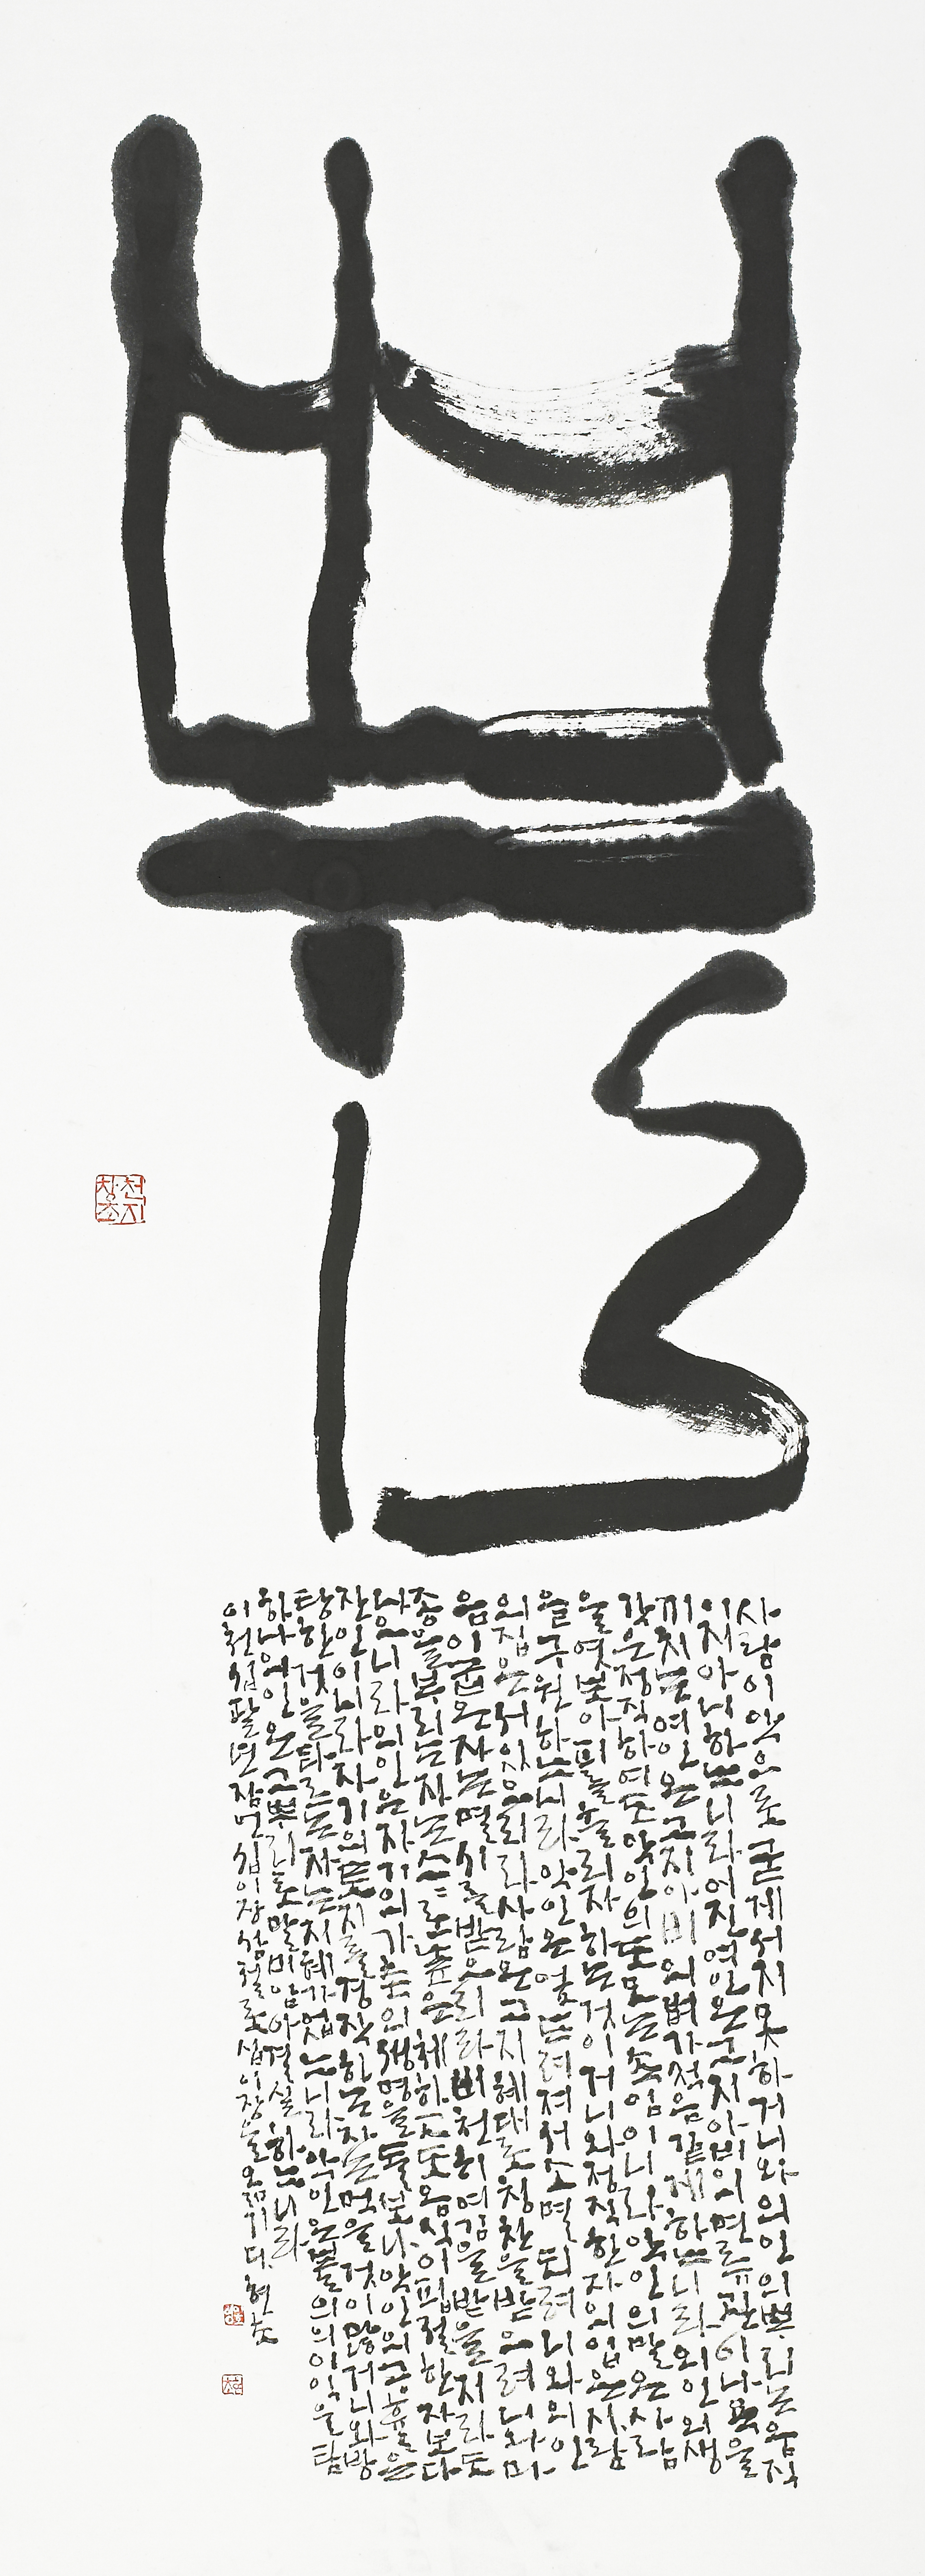 뿌리
사람이악으로굳게서지못하거니와의인의뿌리는움직
이지아니하느니라어진여인은그지아비의면류관이나욕을
끼치는여인은그지아비의뼈가썩음같게하느니라의인의생
각은정직하여도악인의도모는속임이니라악인의말은사람
을엿보아피를흘리자하는것이거니와정직한자의입은사람
을구원하느니라악인은엎드러져서소멸되려니와의인
의집은서있으리라사람은그지혜대로칭찬을받으려니와마
음이굽은자는멸시를받으리라비천히여김을받을지라도
종을부리는자는스스로높은체하고도음식이핍절한자보다
나으니라의인은자기의가축의생명을돌보나악인의긍휼은
잔인이니라자기의토지를경작하는자는먹을것이많거니와방
탕한것을따르는자는지혜가없느니라악인은불의의이익을탐
하나의인은그뿌리로말미암아결실하느니라
이천십팔년잠언십이장삼절로십이장을옮기다
천지창조